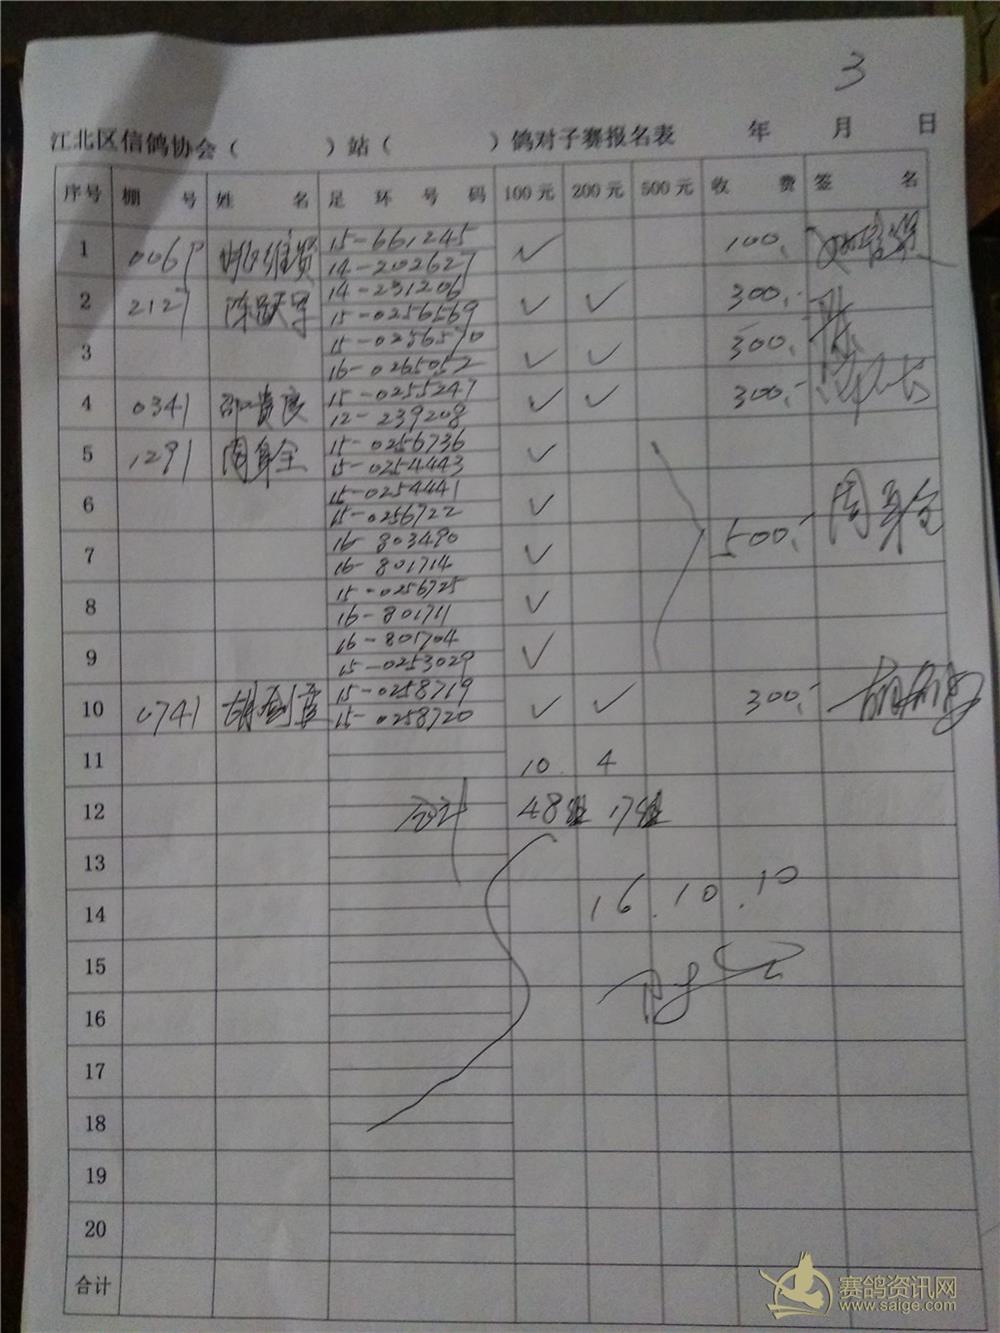 3
江北区信鸽协会（ ）站（ ）鸽对子赛报名表 年 月 日
序号 棚 号 姓 名 足 环 号 码 100元 200元 500元 收 费 签 名
1 15-661245 ✓ 100,-
14-202627
2 2127 陈跃军 14-231206 ✓ ✓ 300,-
15-0256569
3 15-0256570 ✓ ✓ 300,-
16-0265052
4 0341 邵贵良 15-0255247 ✓ ✓ 300,-
12-239208
5 1291 15-0256736 ✓
15-0254443
6 15-0254441 ✓
15-0256722
7 16-803490 ✓ 500,-
16-801714
8 15-0256725 ✓
16-801711
9 16-801704 ✓
15-0253029
10 0741 15-0258719 ✓ ✓ 300,-
15-0258720
11 10 4
12 合计 48组 17组
13
14 16.10.10
15
16
17
18
19
20
合计
赛鸽资讯网
www.saige.com